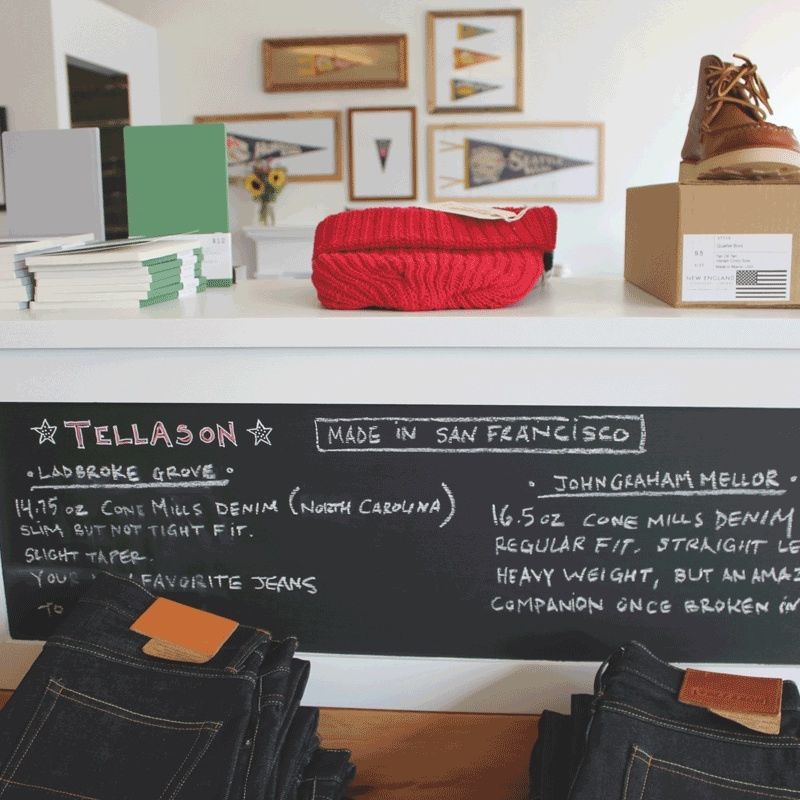 SEATTLE
$12
STYLE
Quarter Boot
9.5
SIZE
Made in Maine USA
NEW ENGLAND
TELLASON
MADE IN SAN FRANCISCO
LADBROKE GROVE
14.75 OZ CONE MILLS DENIM (NORTH CAROLINA)
SLIM BUT NOT TIGHT FIT.
SLIGHT TAPER.
YOUR FAVORITE JEANS
TO
JOHN GRAHAM MELLOR
16.5 OZ CONE MILLS DENIM
REGULAR FIT. STRAIGHT LE
HEAVY WEIGHT, BUT AN AMAZ
COMPANION ONCE BROKEN IN